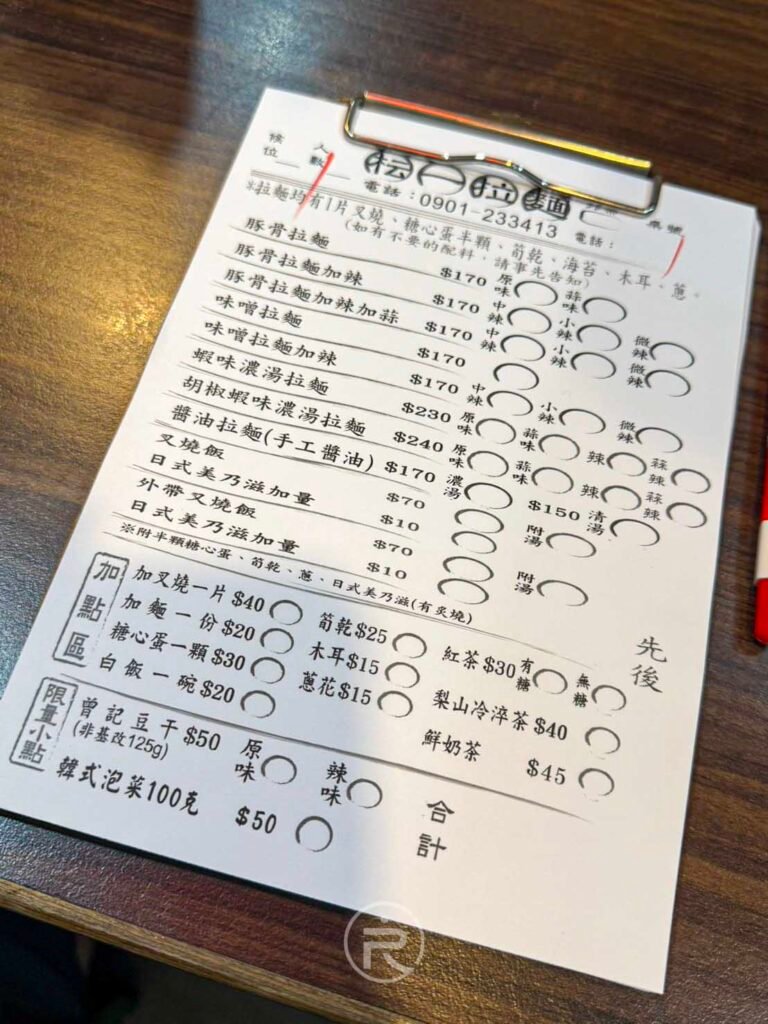 候位__ 人數__ 拉麵
電話：0901-233413 電話：
※拉麵均有1片叉燒、糖心蛋半顆、筍乾、海苔、木耳、蔥。
(如有不要的配料，請事先告知)
豚骨拉麵 $170 原味 蒜味
豚骨拉麵加辣 $170 中辣 小辣 微辣
豚骨拉麵加辣加蒜 $170 中辣 小辣 微辣
味噌拉麵 $170
味噌拉麵加辣 $170 中辣 小辣 微辣
蝦味濃湯拉麵 $230 原味 蒜味 辣 蒜辣
胡椒蝦味濃湯拉麵 $240 原味 蒜味 辣 蒜辣
醬油拉麵(手工醬油) $170 濃湯 $150 清湯
叉燒飯 $70 附湯
日式美乃滋加量 $10
外帶叉燒飯 $70 附湯
日式美乃滋加量 $10
※附半顆糖心蛋、筍乾、蔥、日式美乃滋(有炙燒)
先後
加點區
加叉燒一片 $40 筍乾 $25 紅茶 $30 有糖 無糖
加麵一份 $20 木耳 $15 梨山冷淬茶 $40
糖心蛋一顆 $30 蔥花 $15 鮮奶茶 $45
白飯一碗 $20
限量小點
曾記豆干 $50 原味 辣味
(非基改125g)
韓式泡菜100克 $50
合計